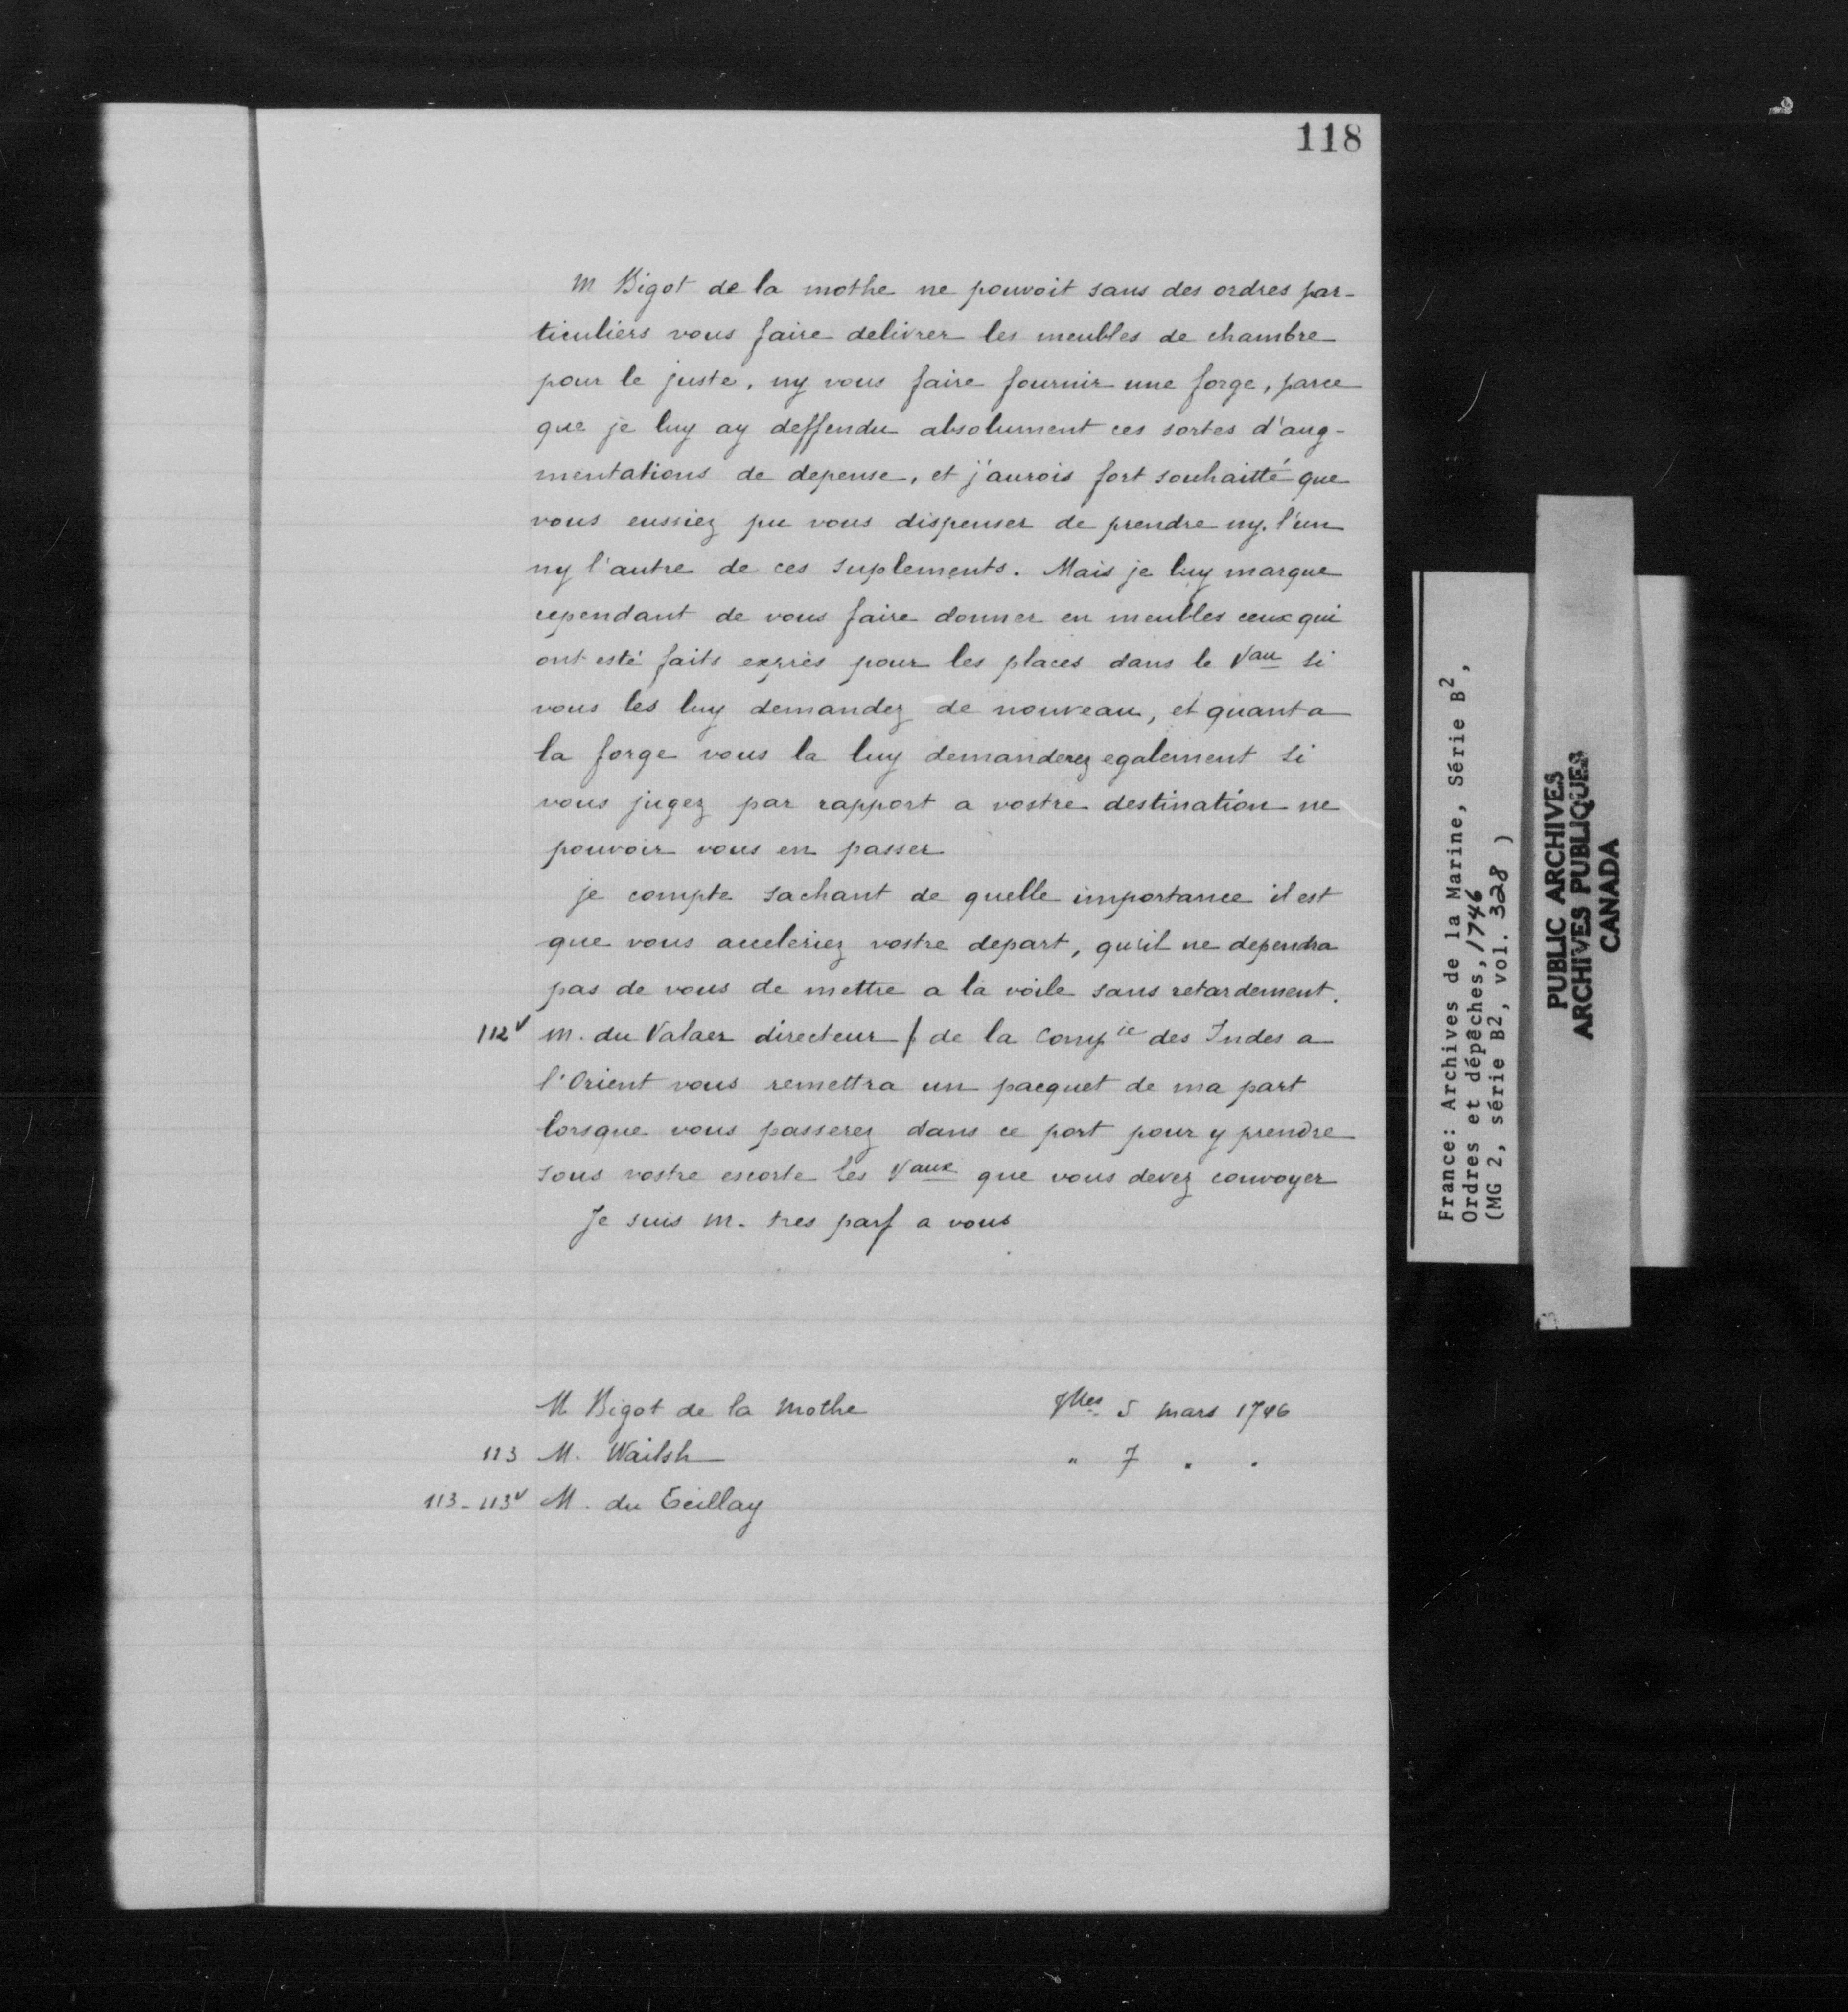 118
M Bigot de la mothe ne pouvoit sans des ordres par-
ticuliers vous faire delivrer les meubles de chambre
pour le juste, ny vous faire fournir une forge, parce
que je luy ay deffendu absolument ces sortes d'aug-
mentations de depense, et j'aurois fort souhaitté que
vous eussiez pu vous dispenser de prendre ny l'un
ny l'autre de ces suplements. Mais je luy marque
cependant de vous faire donner en meubles ceux qui
ont esté faits exprès pour les places dans le Vau si
vous les luy demandez de nouveau, et quant a
la forge vous la luy demanderez egalement si
vous jugez par rapport a vostre destination ne
pouvoir vous en passer
je compte sachant de quelle importance il est
que vous acceleriez vostre depart, qu'il ne dependra
pas de vous de mettre a la voile sans retardement.
112v M. du Valaer directeur / de la Compie des Indes a
l'Orient vous remettra un pacquet de ma part
lorsque vous passerez dans ce port pour y prendre
sous vostre escorte les Vaux que vous devez convoyer
Je suis M. tres parf a vous
M Bigot de la Mothe 5 mars 1746
113 M. Wailsh " 7 " "
113-113v M. du Teillay
France: Archives de la Marine, Série B2,
Ordres et dépêches, 1746
(MG 2, série B2, vol. 328 )
PUBLIC ARCHIVES
ARCHIVES PUBLIQUES
CANADA